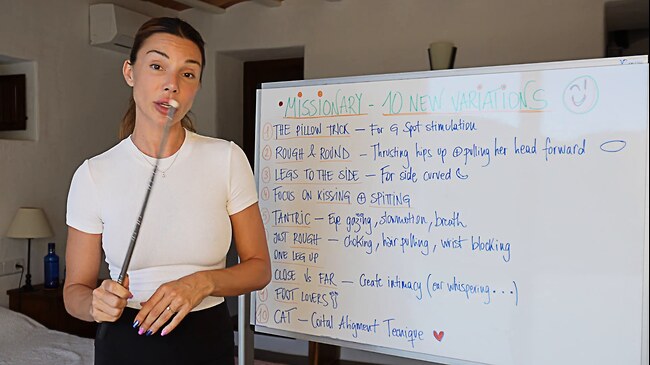 MISSIONARY - 10 NEW VARIATIONS
1 THE PILLOW TRICK – For G Spot stimulation
2 ROUGH & ROUND – Thrusting hips up ⊕ pulling her head forward
3 LEGS TO THE SIDE – For side curved
4 FOCUS ON KISSING ⊕ SPITTING
TANTRIC – Eye gazing, slowmotion, breath
JUST ROUGH – choking, hair pulling, wrist blocking
ONE LEG UP
CLOSE Vs FAR – Create intimacy (ear whispering...)
9 FOOT LOVERS
10 CAT – Coital Alignment Tecnique